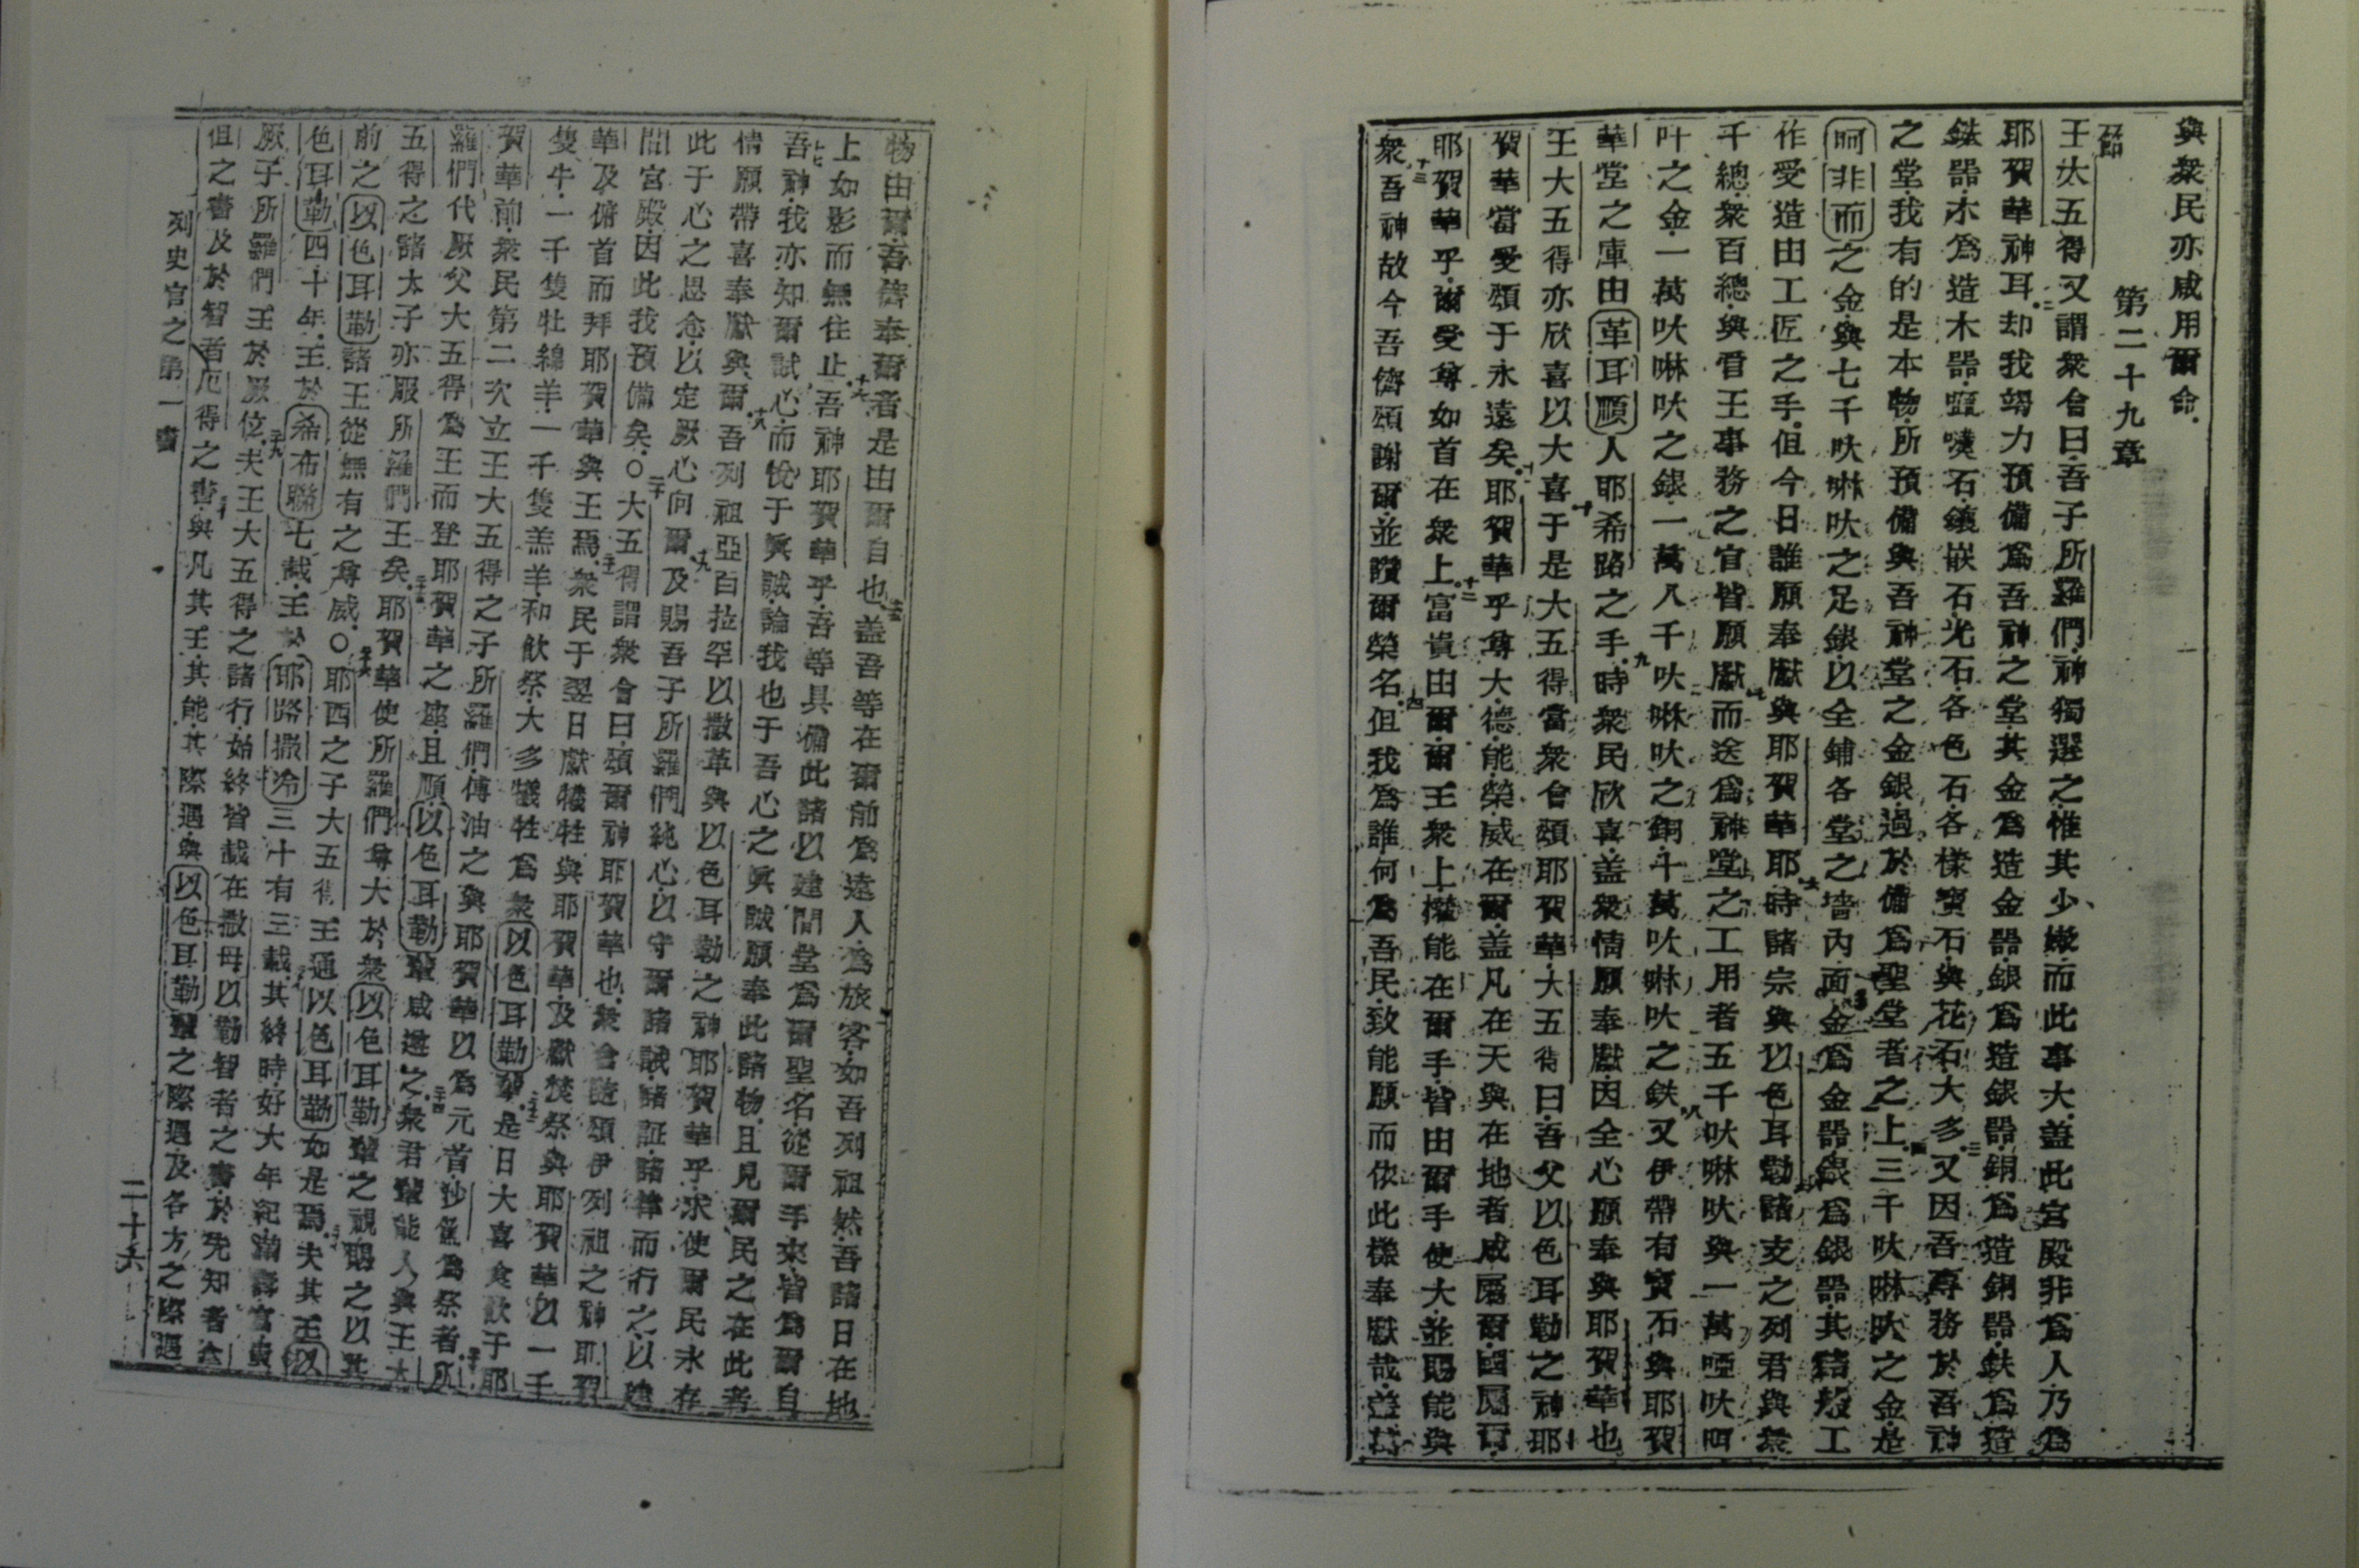 與衆民亦咸用爾命.
第二十九章
節
王大五得又謂衆會曰.吾子所羅們.神獨選之.惟其少嫩.而此事大.盖此宮殿非爲人.乃爲
耶賀華神耳.二却我竭力預備爲吾神之堂.其金爲造金器.銀爲造銀器.銅爲造銅器.鉄爲造
鉄器.木爲造木器.石.鑲嵌石.光石.各色石.各樣寶石.與花石.大多.三又因吾專務於吾神
之堂.我有的是本物.所預備與吾神堂之金銀.過於備爲聖堂者之上.四三千吠啉吠之金.是
啊非而之金.與七千吠啉吠之足銀.以全鋪各堂之墻內面.五金爲金器.銀爲銀器.其諸般工
作.受造由工匠之手.但今日誰願奉獻與耶賀華耶.六時諸宗與以色耳勒諸支之列君.與衆
千總.衆百總.與管王事務之官.皆願獻.七而送爲神堂之工用者.五千吠啉吠與一萬啞吠
叶之金.一萬吠啉吠之銀.一萬八千吠啉吠之銅.十萬吠啉吠之鉄.八又伊帶有寶石.與耶賀
華堂之庫.由革耳順人耶希路之手.九時衆民欣喜.盖衆情願奉獻.因全心願奉與耶賀華也.
王大五得亦欣喜以大喜.十于是大五得當衆會頌耶賀華.大五得曰.吾父以色耳勒之神耶
賀華.當受頌于永遠矣.十一耶賀華乎.尊大.德能.榮威在爾.盖凡在天與在地者.咸屬爾.國屬爾.
耶賀華乎.爾受尊如首在衆上.十二富貴由爾.爾王衆上.權能在爾手.皆由爾手使大.並賜能與
衆.十三吾神故今吾儕頌謝爾.並讚爾榮名.十四但我爲誰.何爲吾民.致能願而依此樣奉獻哉.盖諸
物由爾.吾儕奉爾者.是由爾自也.十五盖吾等在爾前爲遠人.爲旅客.如吾列祖然.吾諸日在地
上如影而無住止.十六吾神耶賀華乎.吾等具備此諸.以建間堂爲爾聖名.從爾手來.皆爲爾自.
十七吾神.我亦知爾試心.而悅于眞誠.論我也.于吾心之眞誠.願奉此諸物.且見爾民之在此者
情願帶喜奉獻與爾.十八吾列祖亞百拉罕.以撒革.與以色耳勒之神耶賀華乎.求使爾民永存
此于心之思念.以定厥心向爾.十九及賜吾子所羅們純心.以守爾諸誡.諸証.諸律而行之.以建
間宮殿.因此我預備矣.〇二十大五得謂衆會曰.頌爾神耶賀華也.衆會隨頌伊列祖之神耶賀
華.及俯首而拜耶賀華與王焉.二十一衆民于翌日獻犧牲與耶賀華.及獻焚祭與耶賀華.以一千
隻牛.一千隻牡綿羊.一千隻羔羊.和飲祭.大多犧牲爲衆以色耳勒輩.二十二是日大喜食飲于耶
賀華前.衆民第二次立王大五得之子所羅們.傅油之與耶賀華以爲元首.抄為祭者.二十三所
羅們代厥父大五得爲王而登耶賀華之座.且順.以色耳勒輩咸遵之.二十四衆君輩能人與王大
五得之諸太子.亦服所羅們王矣.二十五耶賀華使所羅們尊大於衆以色耳勒輩之視.賜之以其
前之以色耳勒諸王從無有之尊威.〇二十六耶西之子大五得王通以色耳勒如是焉.二十七夫其王以
色耳勒四十年.王於希布聯七載.王於耶路撒冷三十有三載.二十八其終時.好大年紀.滿壽富貴.
厥子所羅們王於厥位.二十九夫王大五得之諸行.始終皆載在撒母以勒智者之書.於先知者
但之書.及於智者厄得之書.三十與凡其王.其能.其際遇.與以色耳勒輩之際遇.及各方之際遇
列史官之第一書
二十六